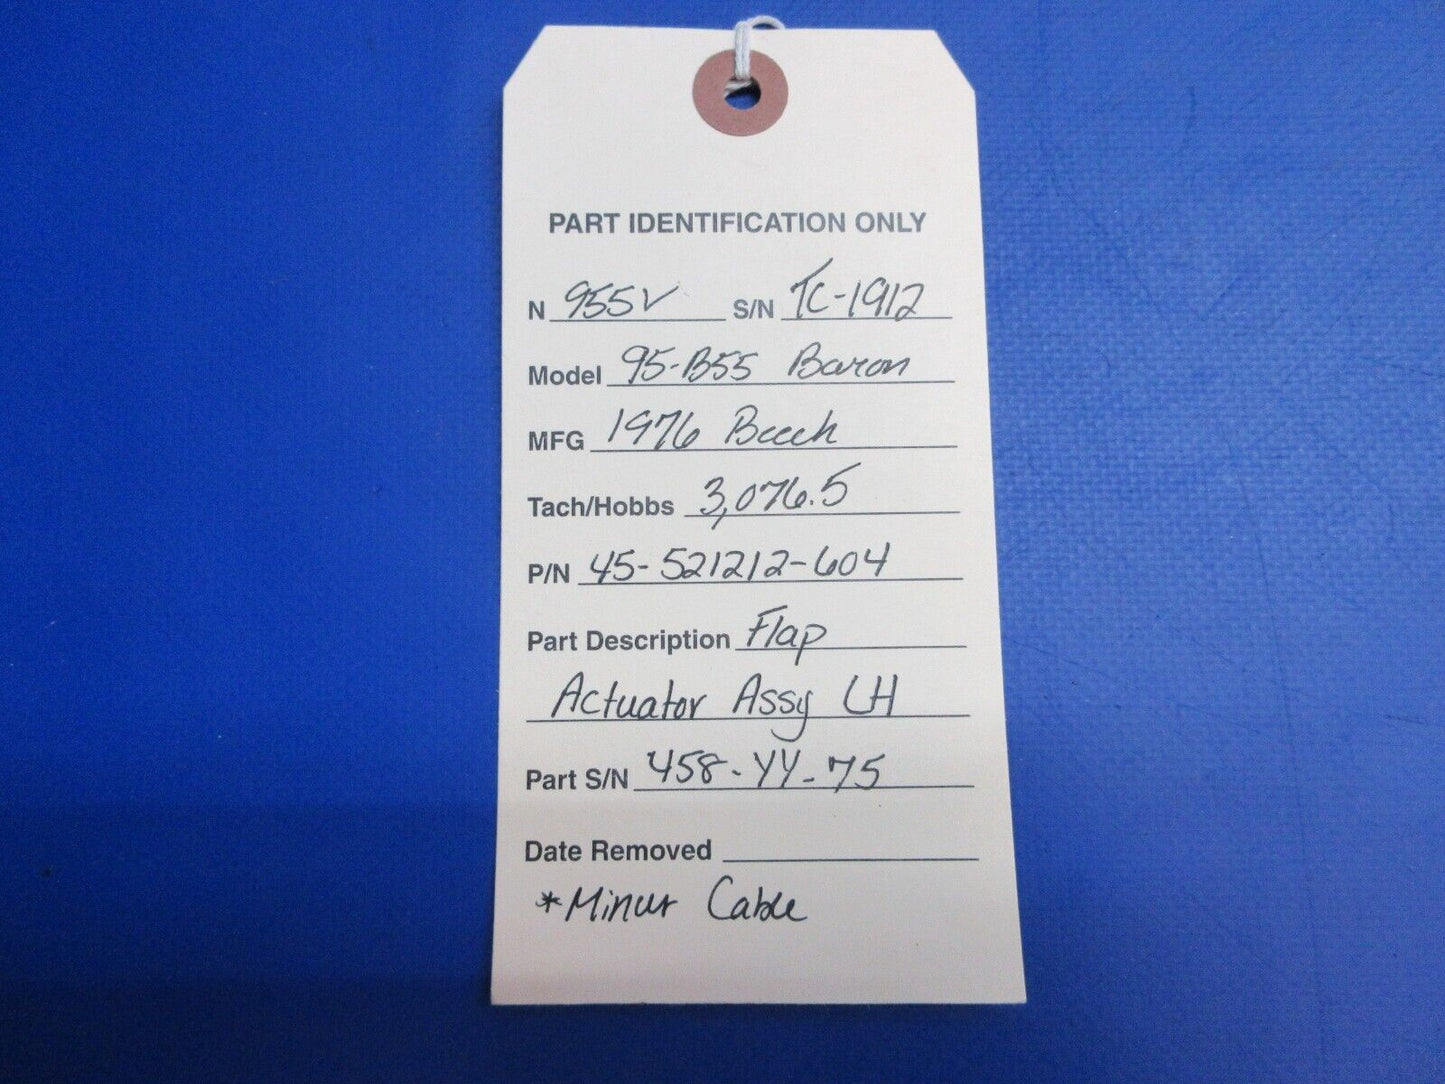 PART IDENTIFICATION ONLY
N 955V S/N TC-1912
Model 95-B55 Baron
MFG 1976 Beech
Tach/Hobbs 3,076.5
P/N 45-521212-604
Part Description Flap
Actuator Assy LH
Part S/N 458-YY-75
Date Removed
*Minus Cable